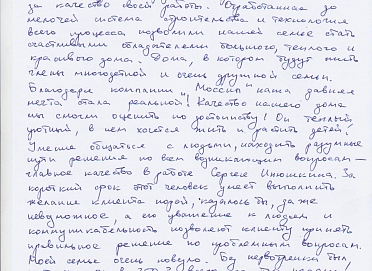 за качество своей работы. Отработанная до
мелочей система строительства и технология
всего процесса позволили нашей семье стать
счастливыми обладателями большого, теплого и
красивого дома. Дома, в котором будут жить
члены многодетной и очень дружной семьи.
Благодаря компании "Моссип" наша давняя
мечта стала реальной! Качество нашего дома
мы смогли оценить по достоинству! Он теплый,
уютный, в нем хочется жить и растить детей!
Умение общаться с людьми, находить разумные
пути решения по всем возникающим вопросам –
главное качество в работе Сергея Инюшкина. За
короткий срок этот человек умеет выполнить
желание клиента порой, казалось бы, даже
невозможное, а его уважение к людям и
коммуникабельность позволяют клиенту принять
правильное решение по проблемным вопросам.
Моей семье очень повезло. Без нервотрепки был